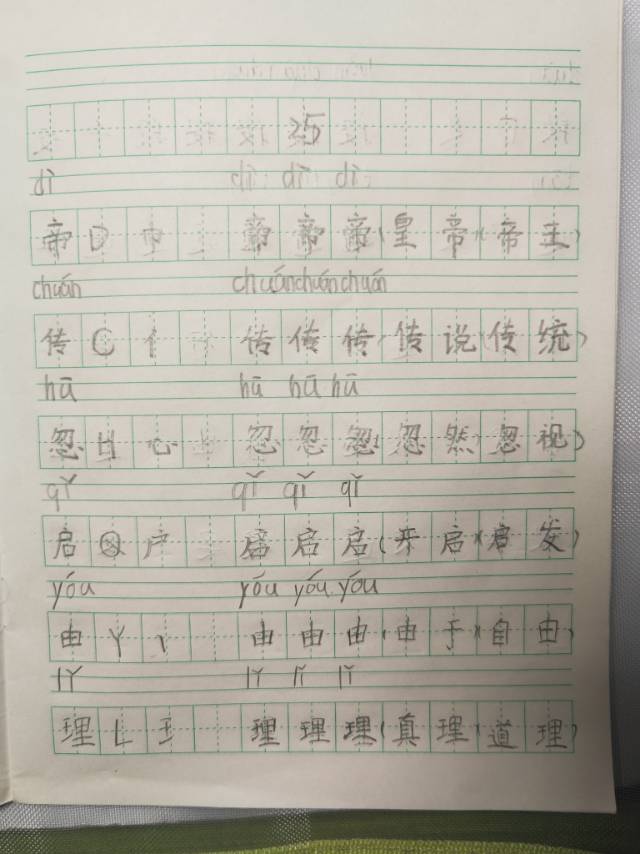 25
dì dì dì dì
帝 D 巾 帝 帝 帝(皇帝)(帝王)
chuán chuán chuán chuán
传 C 亻 传 传 传(传说)(传统)
hū hū hū hū
忽 H 心 忽 忽 忽(忽然)(忽视)
qǐ qǐ qǐ qǐ
启 Q 户 启 启 启(开启)(启发)
yóu yóu yóu yóu
由 Y 丨 由 由 由(由于)(自由)
lǐ lǐ lǐ lǐ
理 L 王 理 理 理(真理)(道理)